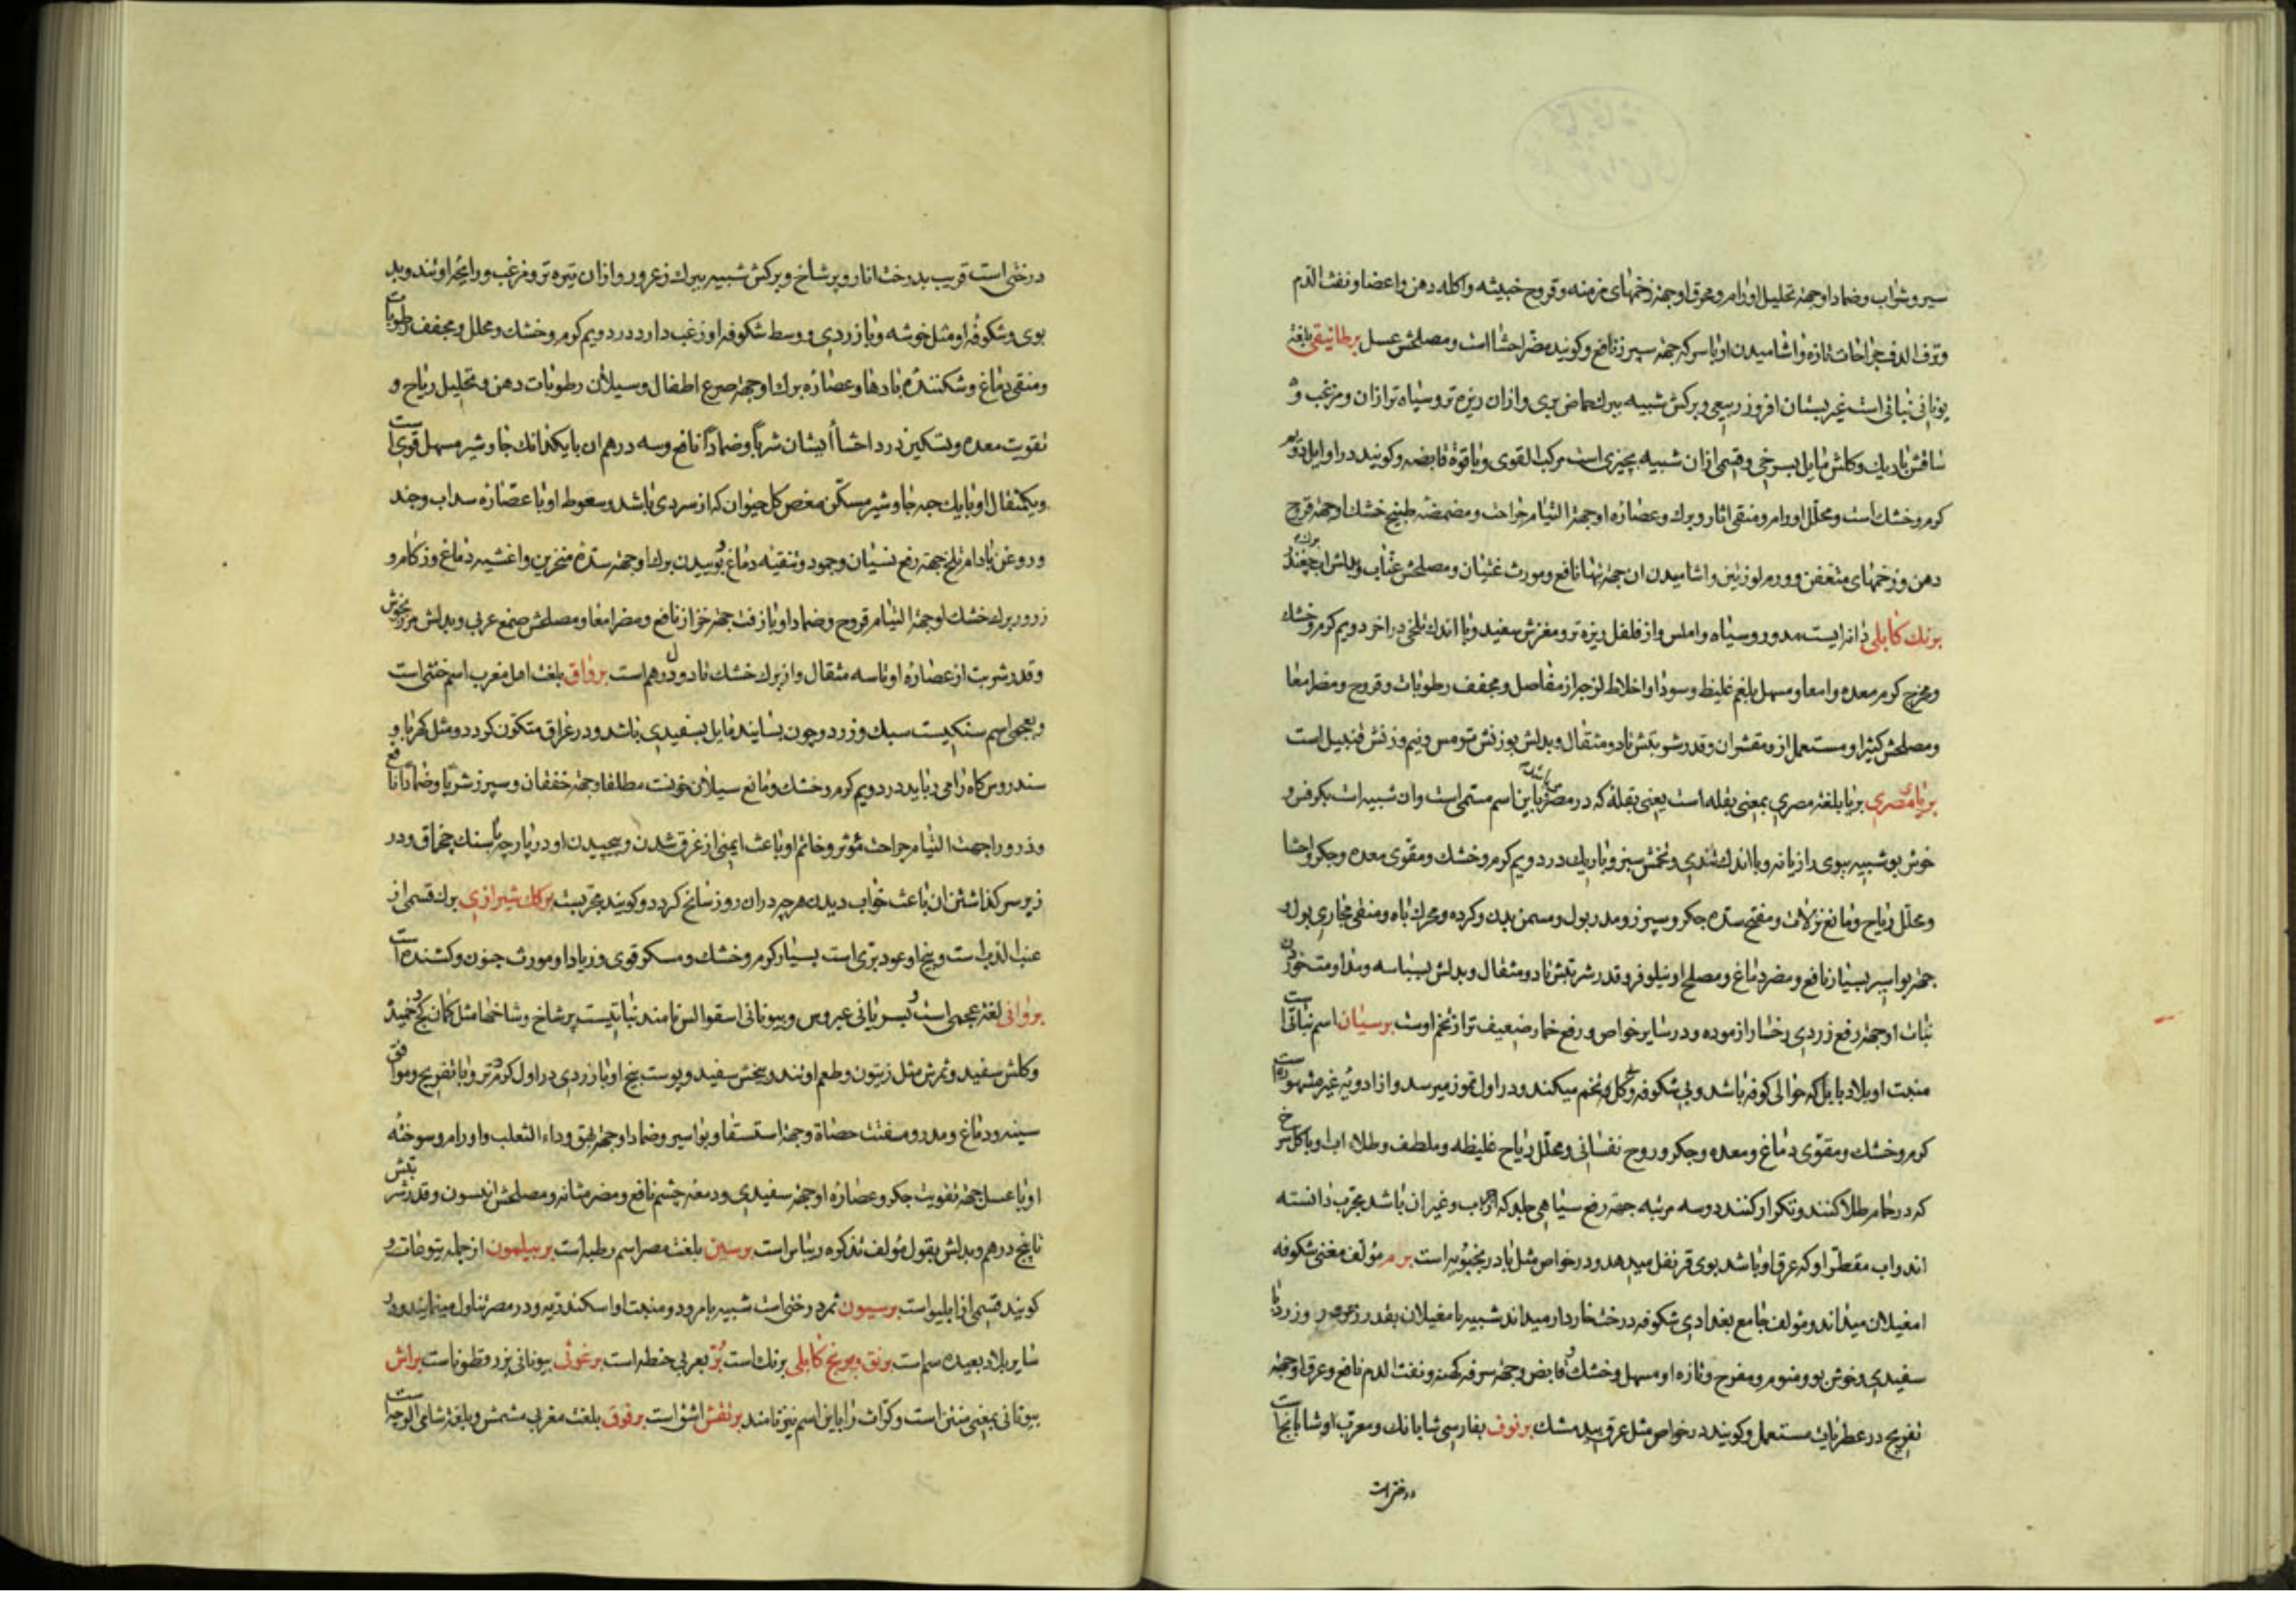 سیر و شراب و ضماد او جهة تحلیل اورام و محرق او جهة زخمهای مزمنه و قروح خبیثه و اکله دهن و اعضا و نفث الدم
و نزف الدم جراحات تازه و اشامیدن او با سرکه جهة سپرز نافع و کویند مضر احشا است و مصلحش عسل برطانیقی بلغة
یونانی نباتی است غیر بستان افروز ربیعی و برکش شبیه ببرك حماض بری و از ان ریزه تر و سیاه تر از ان و مزغب و
ساقش باریك و کلش مایل بسرخی و قسمی از ان شبیه بچیزی است مرکب القوی و با قوة قابضه و کویند در اوایل دویم
کرم و خشك است و محلل اورام و منقی اثار و برك و عصاره او جهة التیام جراحت و مضمضه طبیخ خشك او جهة قروح
دهن و زخمهای متعفن و ورم لوزتین و اشامیدن ان جهة تبها نافع و مورث غثیان و مصلحش عناب و بدلش برك چغندر
برنك کابلی دانه ایست مدور و سیاه و املس و از فلفل ریزه تر و مغزش سفید و با اندك تلخی در اخر دویم کرم و خشك
و مخرج کرم معده و امعا و مسهل بلغم غلیظ و سودا و اخلاط لزجه از مفاصل و مجفف رطوبات و قروح و مضر امعا
و مصلحش کثیرا و مستعمل از و مقشر ان و قدر شربتش تا دو مثقال و بدلش بوزنش ترمس و نیم وزنش قنبیل است
بریا مصری بریا بلغة مصری بمعنی بقله است یعنی بقلۀ که در مصر باین اسم مسمی است و ان شبیه است بکرفس و
خوش بو شبیه ببوی رازیانه و با اندك تندی و تخمش سبز و باریك در دویم کرم و خشك و مقوی معده و جکر و احشا
و محلل ریاح و مانع نزلات و مفتح سده جکر و سپرز و مدر بول و مسمن بدن و کرده و محرك باه و منقی مجاری بول و
جهة بواسیر بسیار نافع و مضر دماغ و مصلح او نیلوفر و قدر شربتش تا دو مثقال و بدلش بسباسه و مداومت خوردن
نبات او جهة رفع زردی رخسار ازموده و در سایر خواص و رفع خمار ضعیف تر از تخم اوست برسیان اسم نباتی است
منبت او بلاد بابل که حوالی کوفه باشد و بی شکوفه و کل تخم میکند و در اول تموز میرسد و از ادویه غیر مشهوره است
کرم و خشك و مقوی دماغ و معده و جکر و روح نفسانی و محلل ریاح غلیظه و ملطف و طلاء اب او با کل سرخ
که در حمام طلا کنند و تکرار کنند دو سه مرتبه جهة رفع سیاهی جلد که از جرب و غیر ان باشد مجرب دانسته
اند و اب مقطر او که عرق او باشد بوی قرنفل میدهد و در خواص مثل بادرنجبویه است برم مؤلف مغنی شکوفه
امغیلان میداند و مؤلف جامع بغدادی شکوفه درخت خاردار میداند شبیه بامغیلان بقدر و زرد با
سفیدی و خوش بو و منوم و مفرح و تازه او مسهل و خشك قابض و جهة سرفه کهنه و نفث الدم نافع و عرق او جهة
تفریح در عطریات مستعمل و کویند در خواص مثل عرق بید مشك برنوف بفارسی شابانك و معرب او شابانج است
درختی است
درختی است قریب بدرخت انار و پر شاخ و برکش شبیه ببرك زعرور و از ان تیره تر و مزغب و رایحه او تند و بد
بوی و شکوفه او مثل خوشه و با زردی و وسط شکوفه او زغب دارد در دویم کرم و خشك و محلل و مجفف رطوبات
و منقی دماغ و شکننده بادها و عصاره برك او جهة صرع اطفال و سیلان رطوبات دهن و تحلیل ریاح و
تقویت معده و تسکین درد احشا ایشان شربا و ضمادا نافع و سه درهم ان با یکدانك جاوشیر مسهل قوی است
و یکمثقال او با یك حبه جاوشیر مسکن مغص کل حیوان که از سردی باشد و سعوط او با عصاره سداب و جند
و روغن بادام تلخ جهة رفع نسیان و جمود و تنقیه دماغ و بوییدن برك او جهة سده منخرین و اغشیه دماغ و زکام و
زرور برك خشك او جهة التیام قروح و ضماد او با زفت جهة خزاز نافع و مضر امعا و مصلحش صمغ عربی و بدلش مرزنجوش
و قدر شربت از عصاره او تا سه مثقال و از برك خشك تا دو درهم است برواق بلغت اهل مغرب اسم خنثی است
و بعجمی اسم سنکیست سبك و زرد و چون بسایند مایل بسفیدی باشد و در عراق متکون کردد و مثل کهربا و
سندروس کاه را می رباید در دویم کرم و خشك و مانع سیلان خونست مطلقا و جهة خفقان و سپرز شربا و ضمادا نافع
و ذرور او جهت التیام جراحت مؤثر و خاتم او باعث ایمنی از غرق شدن و پیچیدن او در پارچه با سنك چخماق و در
زیر سر کذاشتن ان باعث خواب دیدن هر چه در ان روز سانح کردد و کویند مجربست برکك شیرازی برك قسمی از
عنب الثعلب است و بیخ او عود بری است بسیار کرم و خشك و مسکر قوی و زیاد او مورث جنون و کشنده است
بروانی لغة عجمی است و بسریانی عبروس و بیونانی اسقوالس نامند نباتیست پر شاخ و شاخها مثل کمان کج و خمیده
و کلش سفید و ثمرش مثل زیتون و طعم او تند و بیخش سفید و پوست بیخ او با زردی در اول کرم و تر و با تفریح و موافق
سینه و دماغ و مدر و مفتت حصاة و جهة استسقا و بواسیر و ضماد او جهة بهق و داء الثعلب و اورام و سوخته
او با عسل جهة تقویت جکر و عصاره او جهة سفیدی و دمعه چشم نافع و مضر مثانه و مصلحش انیسون و قدر شربتش
تا پنج درهم و بدلش بقول مؤلف تذکره ریباس است برسین بلغت مصر اسم رطبه است بربیلمون از جمله یتوعات و
کویند قسمی از ابلیو است برسیون ثمر درختی است شبیه بامرود و منبت او اسکندریه و در مصر تناول مینمایند و در
سایر بلاد بعیده سم است برنق و برنج کابلی برنك است بُرّ بعربی حنطه است برغوثی بیونانی بزرقطونا است براش
بیونانی بمعنی منتن است و کراث را باین اسم نیز نامند برنفش اشق است برقوق بلغت مغربی مشمش و بلغة شامی الوچه است